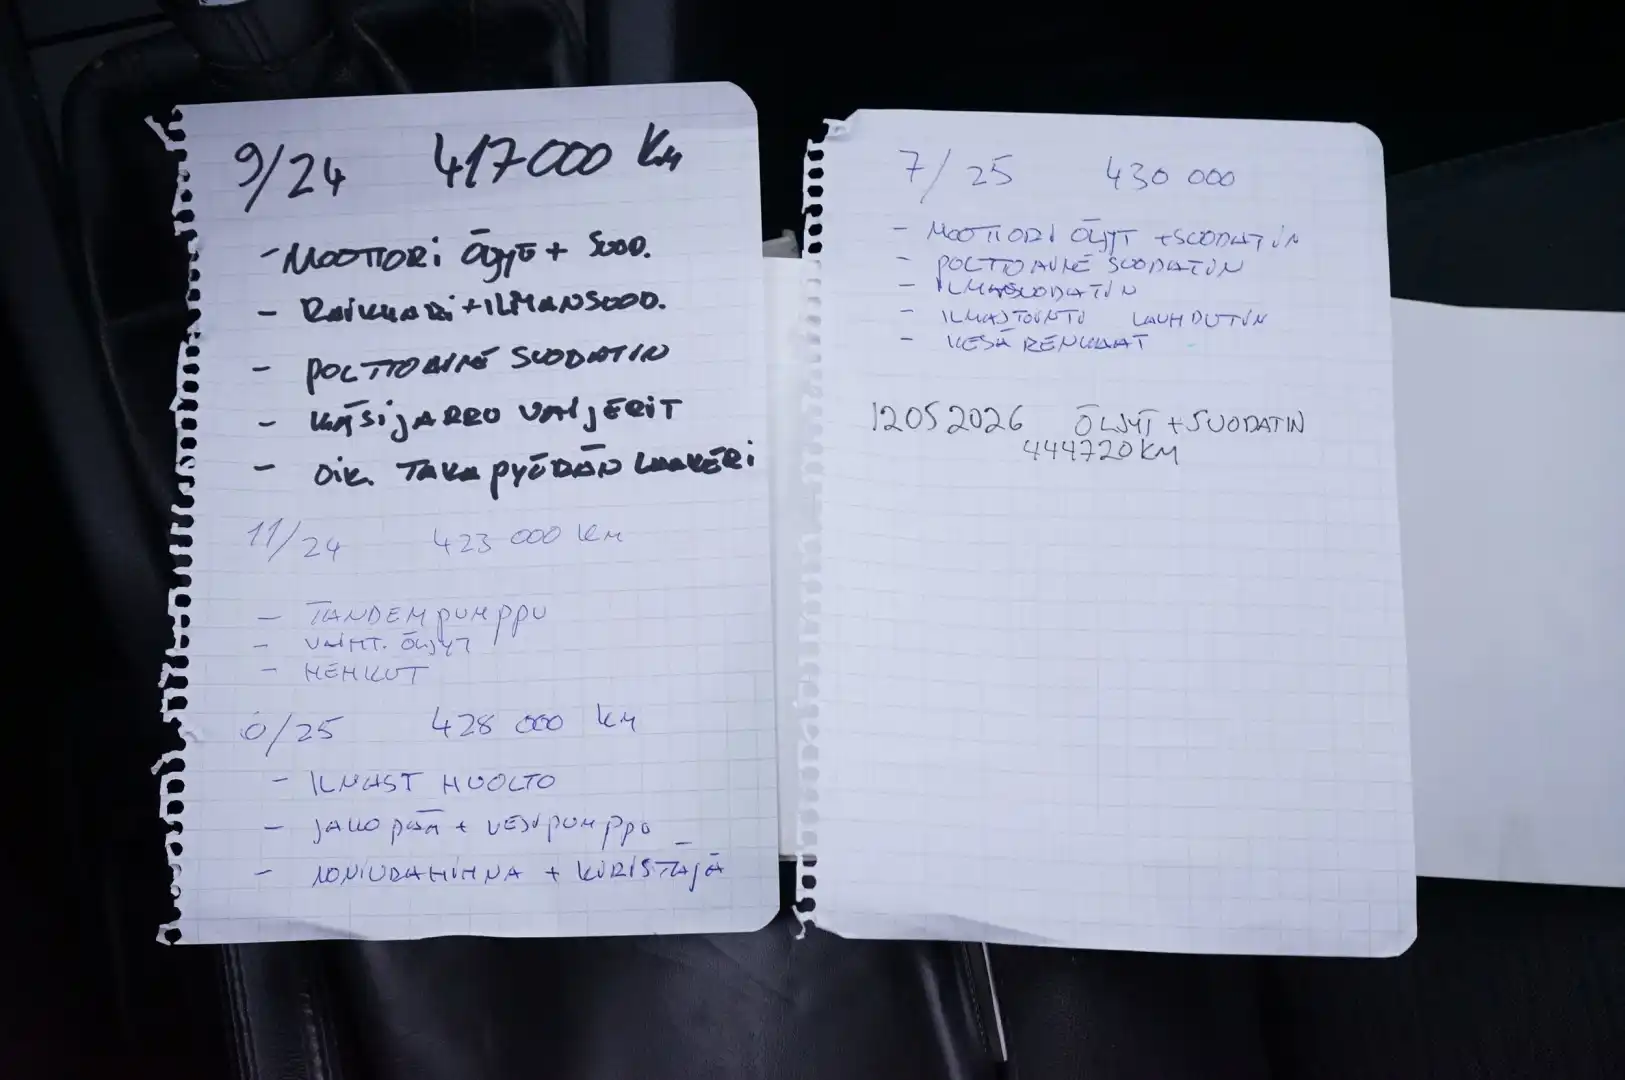 9/24 417000 Km
- MOOTTORi ÖljyT + SUOD.
- RAiKUARi + ILMANSUOD.
- POLTTOAINE SUODATIN
- KÄSiJARRU VAIJERiT
- Oik. TAKA PYÖRÄN LAAKERi
11/24 423 000 Km
- TANDEMpumppu
- VAIHT. ÖLJYT
- HEHKUT
/25 428 000 km
- ILMAST HUOLTO
- JAKOPÄÄ + VESIpumppu
- MONIURAHIHNA + KIRISTÄJÄ
7/25 430 000
- MOOTTORI ÖLJYT + SUODATIN
- POLTTOAINE SUODATIN
- ILMASUODATIN
- ILMASTOINTI LAUHDUTIN
- KESÄ RENKAAT
12052026 ÖLJYT + SUODATIN
444720KM